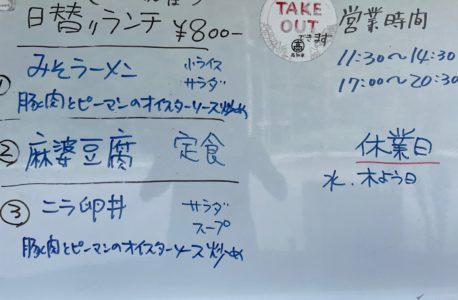 日替りランチ ¥800-
① みそラーメン 小ライス
サラダ
豚肉とピーマンのオイスターソース炒め
② 麻婆豆腐 定食
③ ニラ卵丼 サラダ
スープ
豚肉とピーマンのオイスターソース炒め
TAKE
OUT
できます
営業時間
11:30〜14:30
17:00〜20:30
休業日
水、木よう日